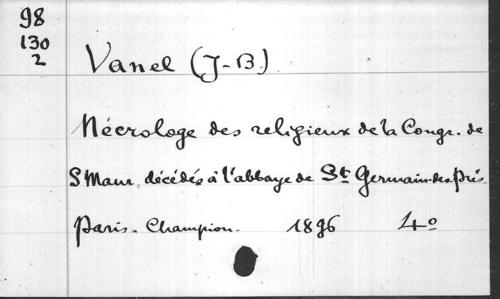 98
130
2
Vanel (J-B)
Nécrologe des religieux de la Congr. de
S Maur, décédés à l'abbaye de St Germain-des-Prés
Paris. Champion. 1896 4o